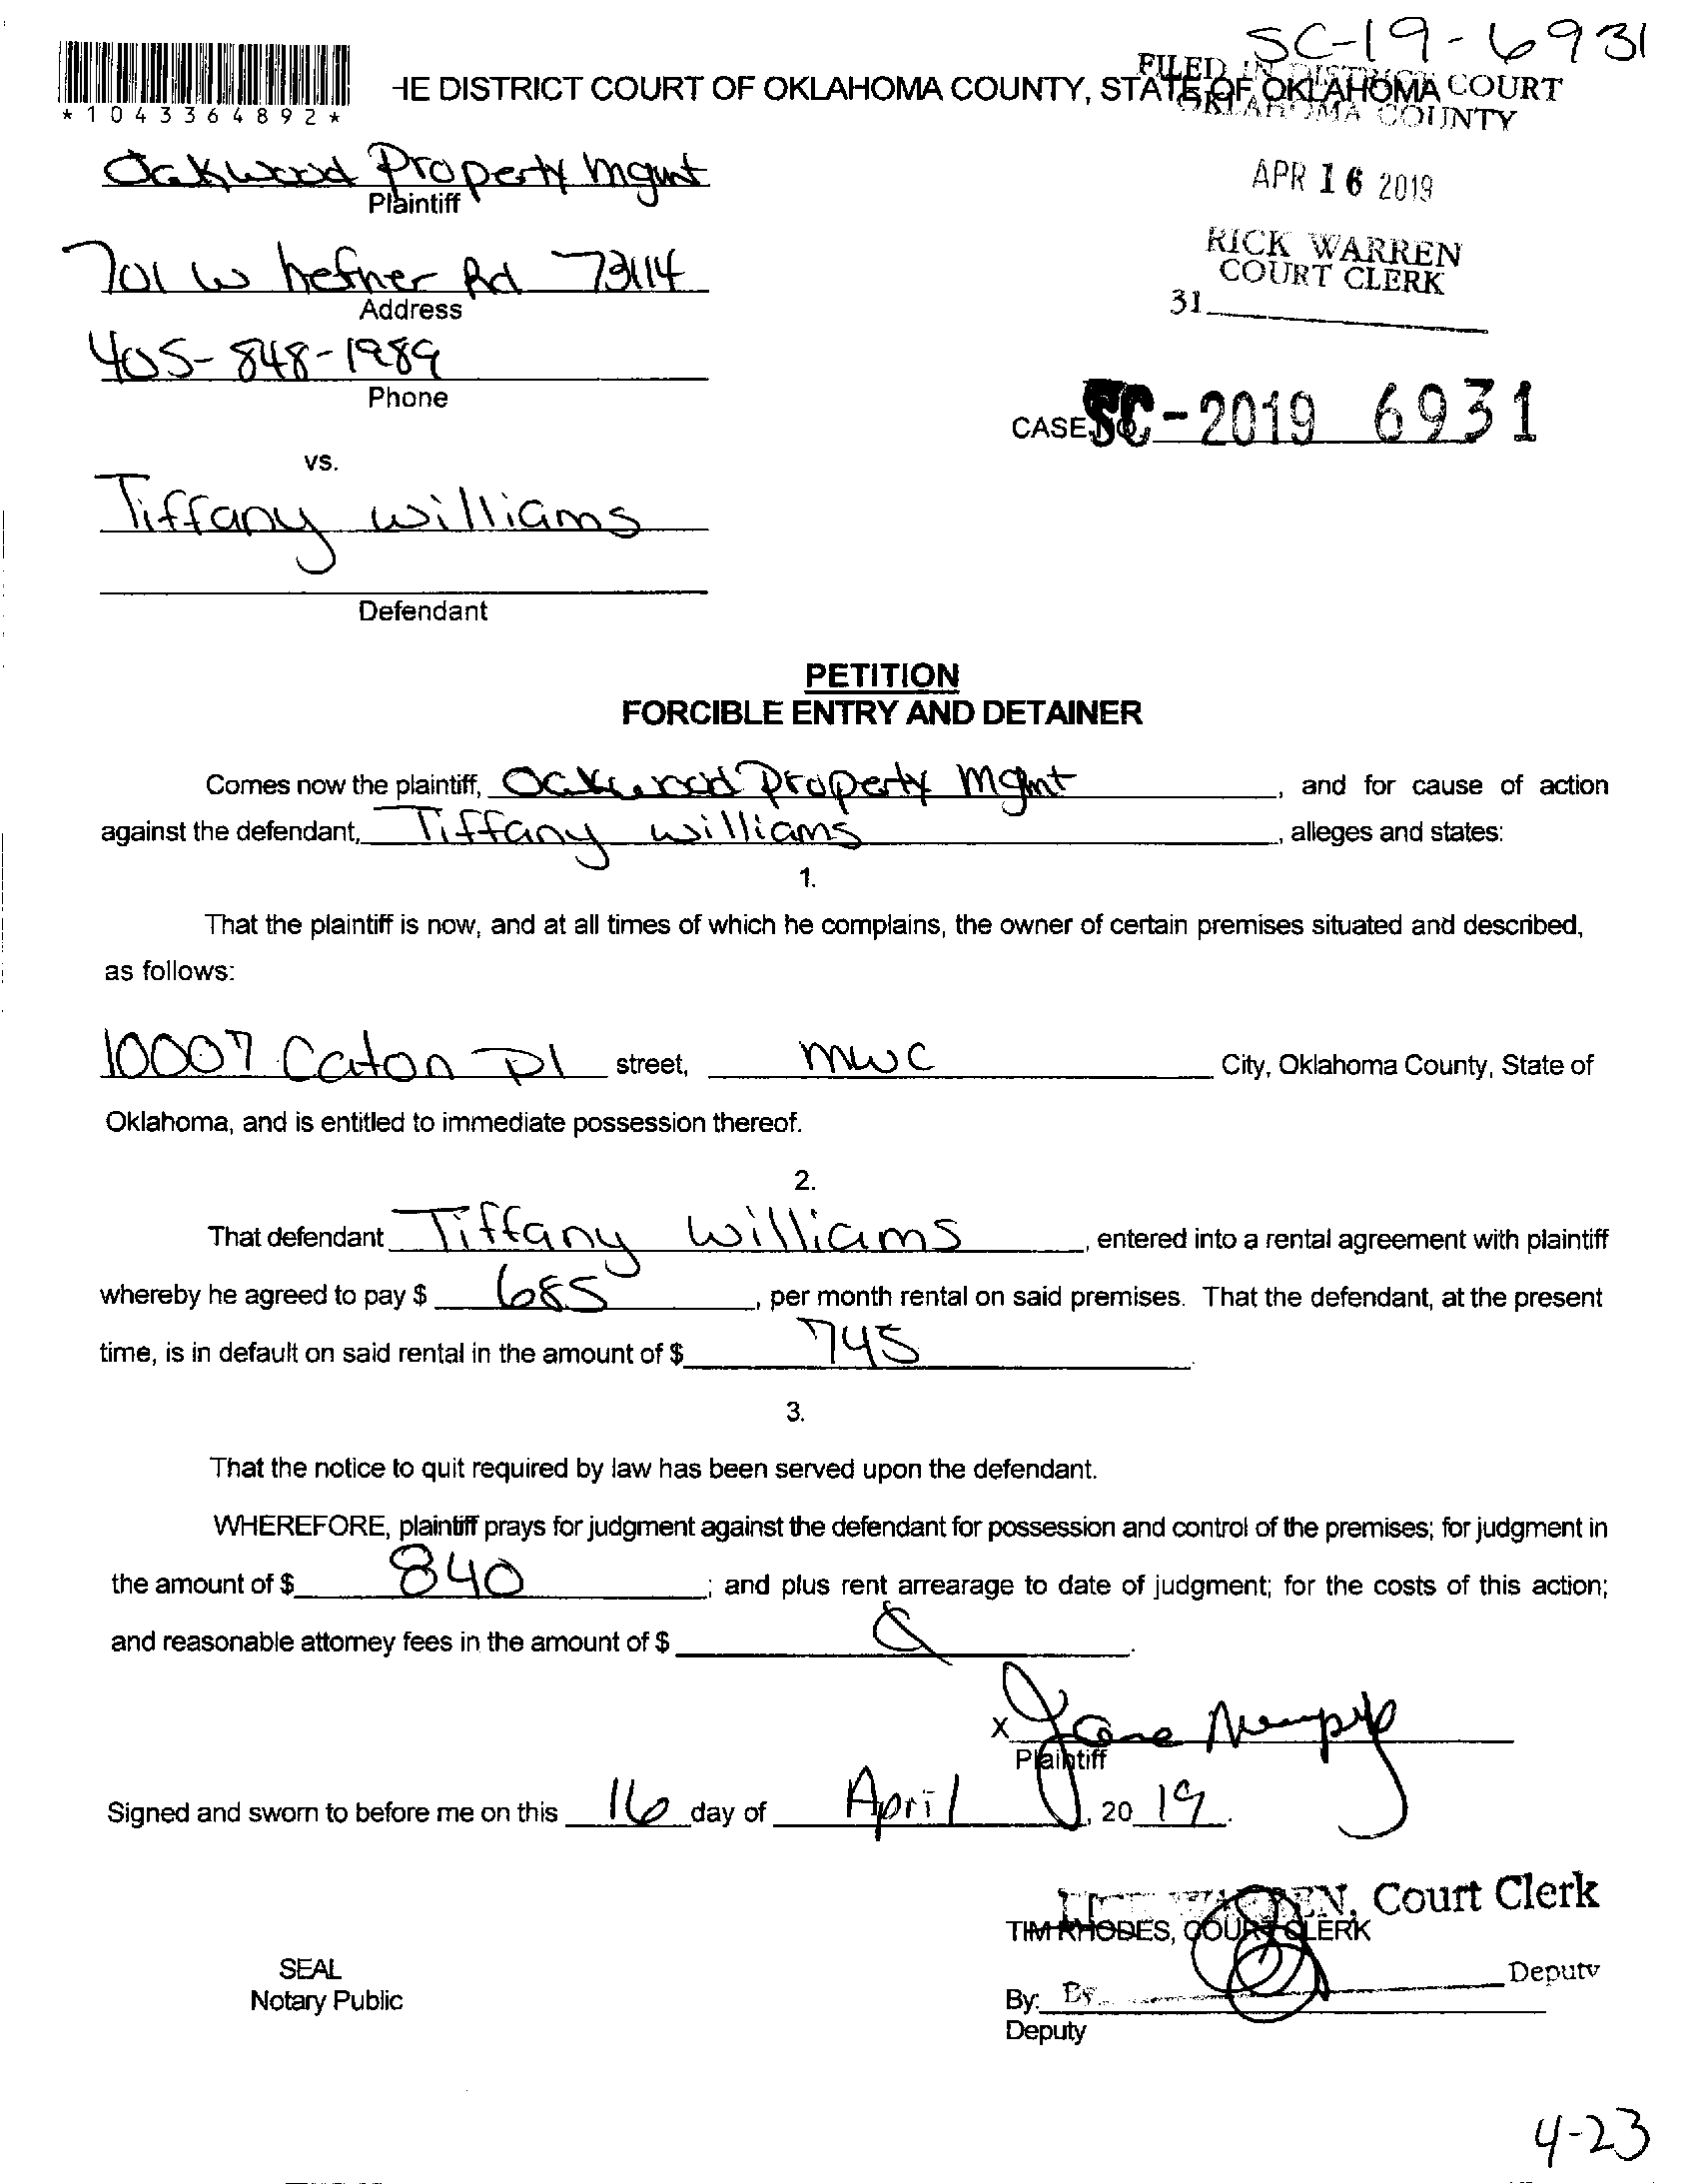 SC-19-6931
HE DISTRICT COURT OF OKLAHOMA COUNTY, STATE OF OKLAHOMA
FILED IN DISTRICT COURT
OKLAHOMA COUNTY
*1043364892*
Oakwood Property Mgmt
Plaintiff
APR 16 2019
701 W hefner Rd 73114
Address
RICK WARREN
COURT CLERK
31
405-848-1989
Phone
CASE NO. SC-2019 6931
vs.
Tiffany williams
Defendant
PETITION
FORCIBLE ENTRY AND DETAINER
Comes now the plaintiff, Oakwood Property Mgmt, and for cause of action
against the defendant, Tiffany williams, alleges and states:
1.
That the plaintiff is now, and at all times of which he complains, the owner of certain premises situated and described,
as follows:
10007 Caton Pl street, mwc City, Oklahoma County, State of
Oklahoma, and is entitled to immediate possession thereof.
2.
That defendant Tiffany williams, entered into a rental agreement with plaintiff
whereby he agreed to pay $ 685, per month rental on said premises. That the defendant, at the present
time, is in default on said rental in the amount of $ 745
3.
That the notice to quit required by law has been served upon the defendant.
WHEREFORE, plaintiff prays for judgment against the defendant for possession and control of the premises; for judgment in
the amount of $ 840; and plus rent arrearage to date of judgment; for the costs of this action;
and reasonable attorney fees in the amount of $ .
X Jane
Plaintiff
Signed and sworn to before me on this 16 day of April, 20 19.
RICK WARREN, Court Clerk
TIM RHODES, COURT CLERK
SEAL
Notary Public
By Deputy
By:
Deputy
4-23